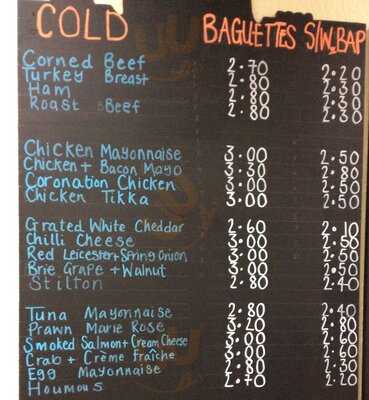 COLD BAGUETTES S/W, BAP
Corned Beef 2.70 2.20
Turkey Breast 2.80 2.30
Ham 2.80 2.30
Roast Beef 2.80 2.30
Chicken Mayonnaise 3.00 2.50
Chicken + Bacon Mayo 3.30 2.80
Coronation Chicken 3.00 2.50
Chicken Tikka 3.00 2.50
Grated White Cheddar 2.60 2.10
Chilli Cheese 3.00 2.50
Red Leicester + Spring Onion 3.00 2.50
Brie Grape + Walnut 3.00 2.50
Stilton 2.80 2.40
Tuna Mayonnaise 2.80 2.40
Prawn Marie Rose 3.20 2.80
Smoked Salmon + Cream Cheese 3.00 2.60
Crab + Crème fraîche 3.00 2.60
Egg Mayonnaise 2.30
Houmous 2.70 2.20